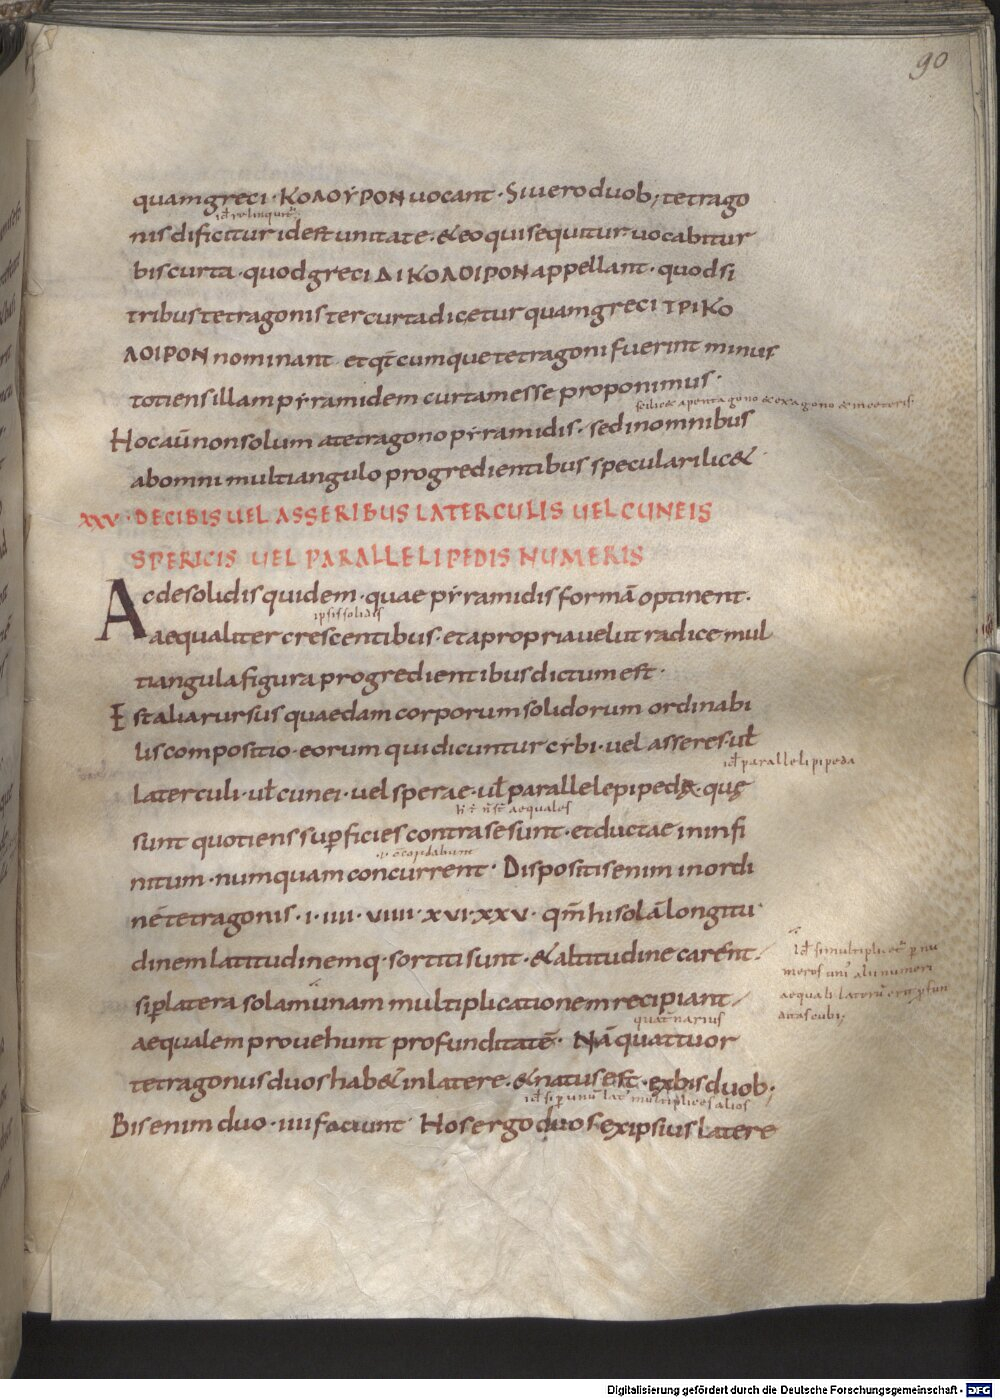 90
quamgreci · ΚΟΛΟΥΡΟΝ uocant · Siuero duob; tetrago
nis dificitur idest unitate · & eo qui sequitur uocabitur
bis curta · quod greci ΔΙΚΟΛΟΙΡΟΝ appellant · quod si
tribus tetragonis ter curta dicetur quam greci ΤΡΙΚΟ
ΛΟΙΡΟΝ nominant et qtcumque tetragoni fuerint minus
totiens illam pyramidem curtam esse proponimus ·
scilic& a pentagono & exagono &
Hoc aūt non solum a tetragono pyramidis · sed in omnibus
ab omni multiangulo progredientibus speculari lic&
XXV · DE CIBIS UEL ASSERIBUS LATERCULIS UEL CUNEIS
SPERICIS UEL PARALLELIPEDIS NUMERIS
Ac de solidis quidem · quae pyramidis formā optinent ·
ipsis solidis
aequaliter crescentibus · et a propria uelut radice mul
tiangula figura progredientibus dictum est ·
Est alia rursus quaedam corporum solidorum ordinabi
lis compositio · eorum qui dicuntur cybi · uel asseres · ul̄
id̄ parallelipipeda
laterculi · ul̄ cunei · uel sperae · ul̄ parallelepipedę · quę
aequales
sunt quotiens sup̄ficies contra se sunt · et ductae in infi
nitum · numquam concurrent · Dispositis enim in ordi
nē tetragonis · I · IIII · VIIII · XVI · XXV · qm̄ hi solā longitu
dinem latitudinemq · sortiti sunt · & altitudine carent
si p̄ latera solam unam multiplicationem recipiant
id̄ si multiplicet̄ p̄ nu
meros unī alii numeri
aequali laterū
cubi;
aequalem prouehunt profunditatē · Nā quattuor
quat̄narius
tetragonus duos hab& in latere · & natus est · ex bis duob;
id̄ si p̄ unū lat̄ multiplices alios
Bis enim duo · IIII faciunt Hos ergo duos · ex ipsius latere
Digitalisierung gefördert durch die Deutsche Forschungsgemeinschaft - DFG